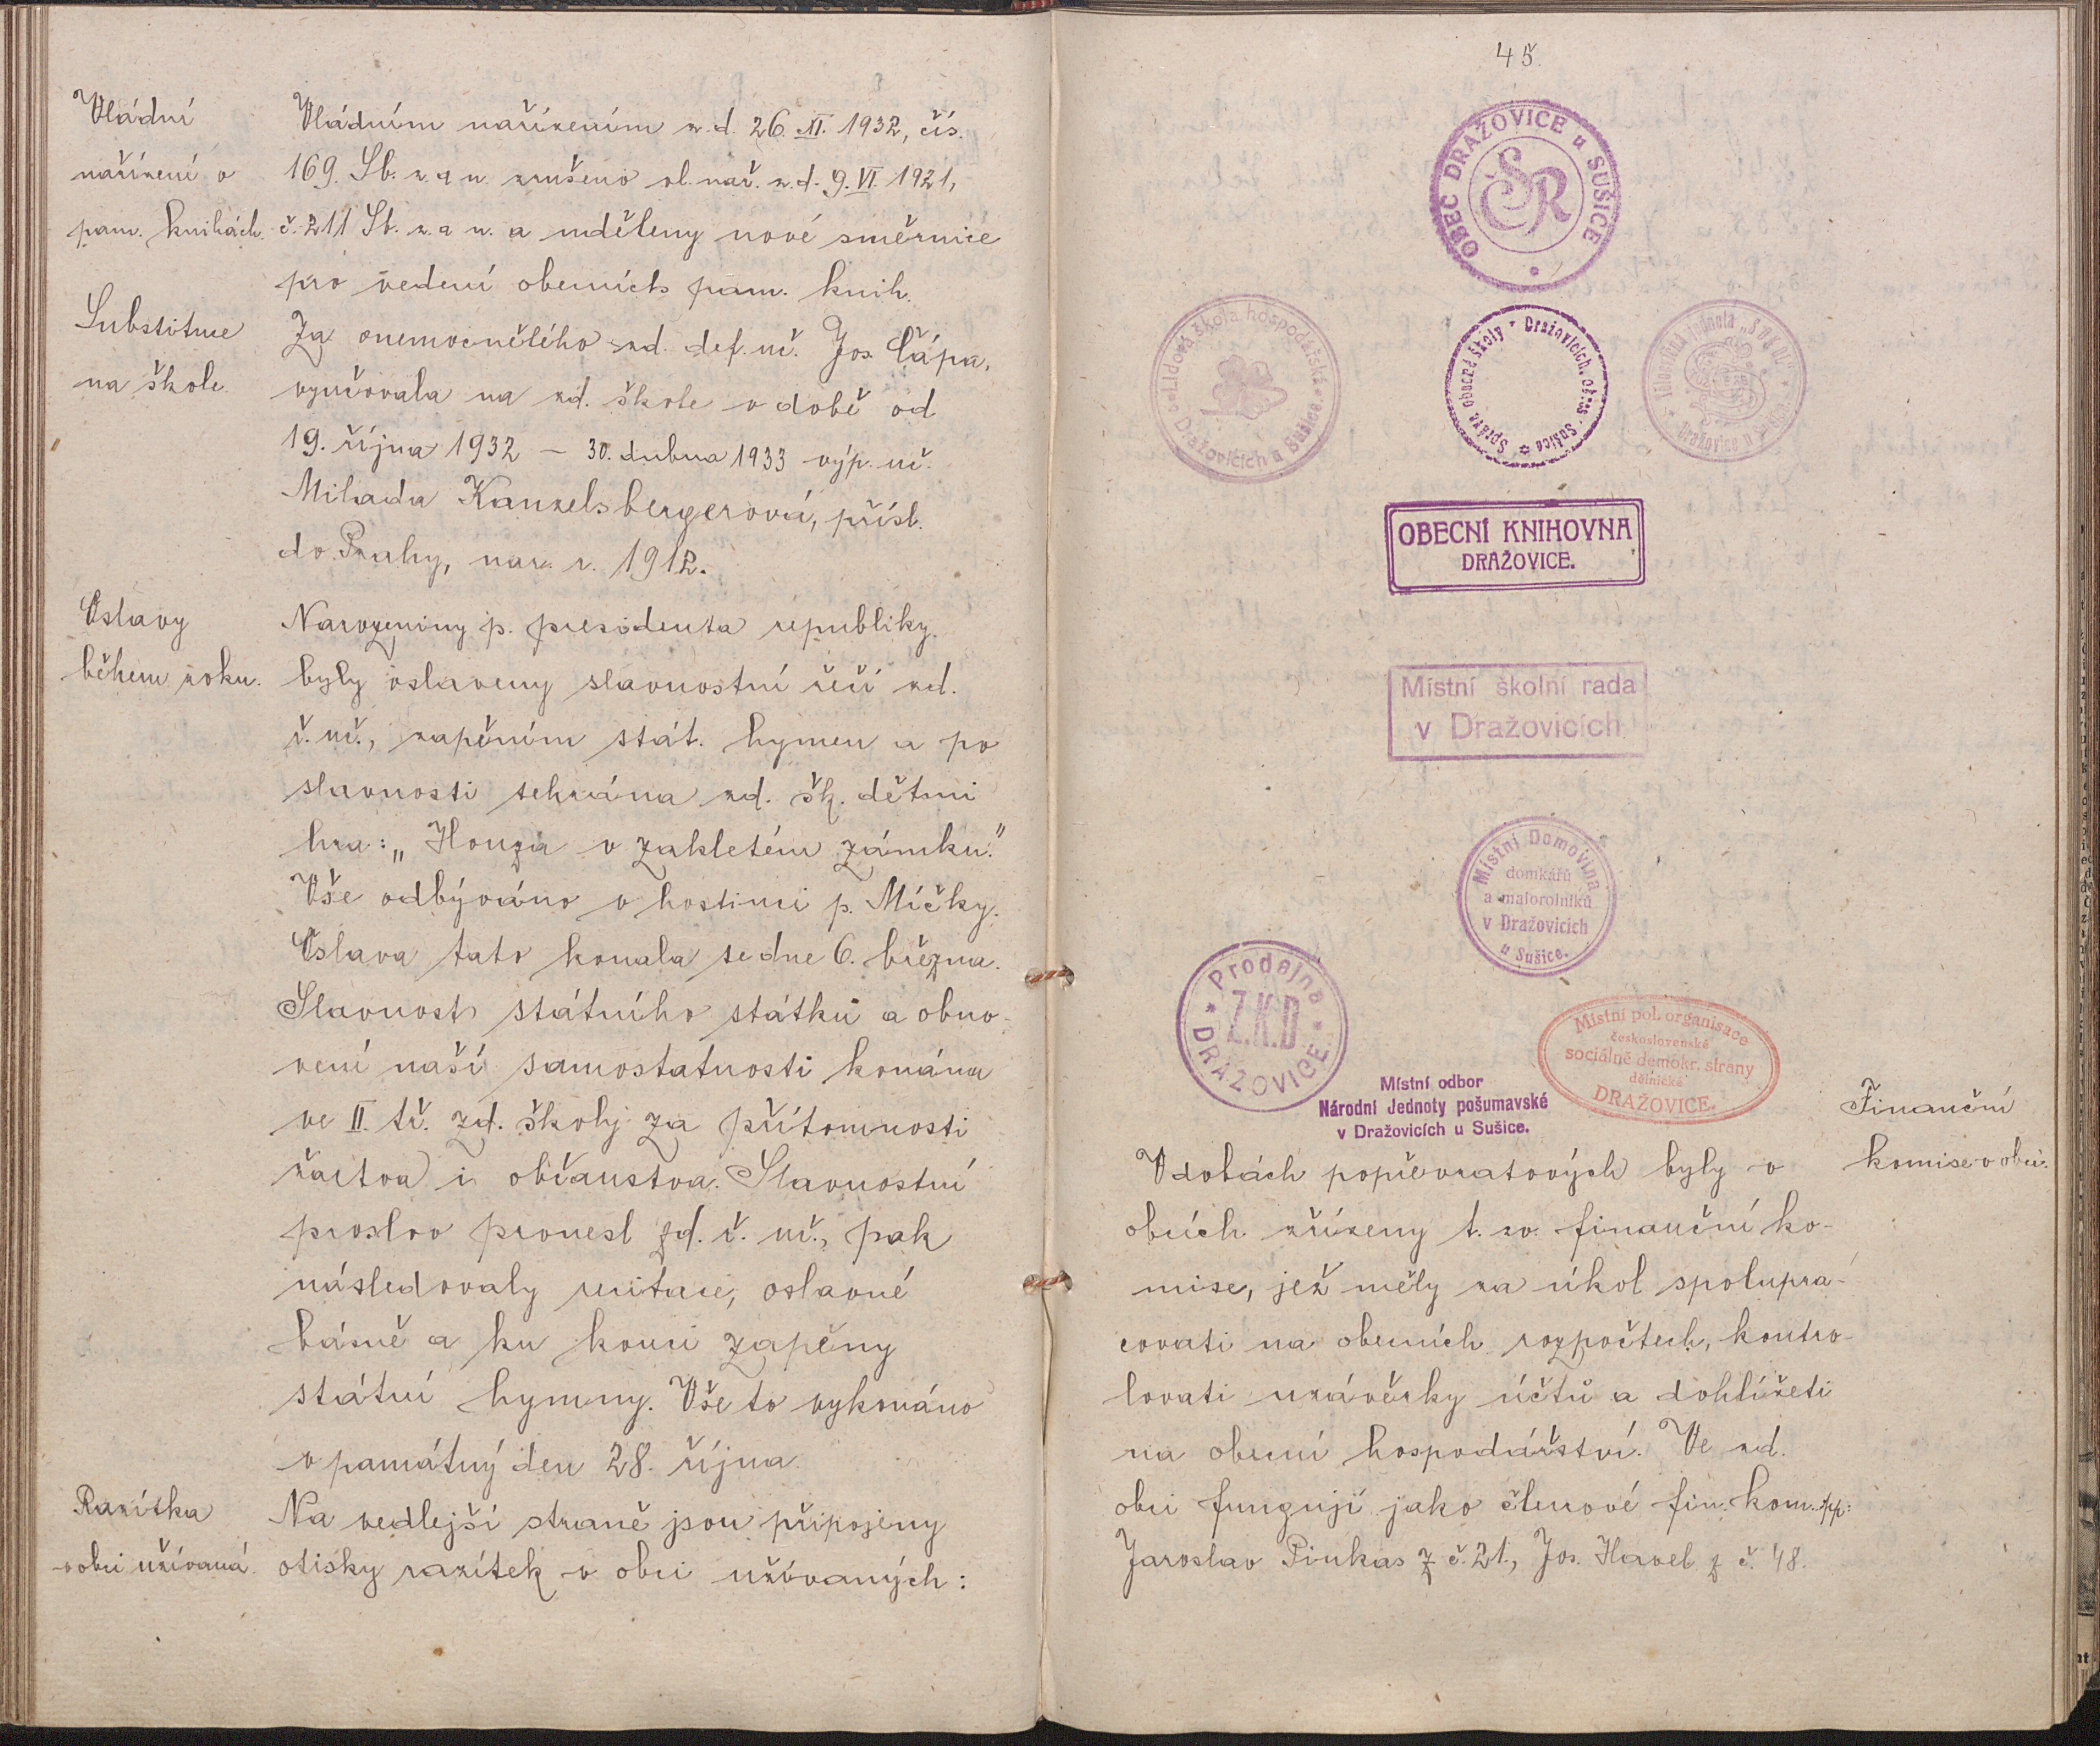 Vládní
nařízení o
pam. knihách.
Vládním nařízením z. d. 26. XI. 1932, čís.
169. Sb. z. a n. zrušeno vl. nař. z. d. 9. VI. 1921,
č. 211 Sb. z. a n. a uděleny nové směrnice
pro vedení obecních pam. knih.
Substituce
na škole.
Za onemocnělého zd. def. uč. Jos. Čápa,
vyučovala na zd. škole v době od
19. října 1932 – 30. dubna 1933 výp. uč.
Milada Kanzelsbergerová, přísl.
do Prahy, nar. r. 1912.
Oslavy
během roku.
Narozeniny p. presidenta republiky
byly oslaveny slavnostní řečí zd.
ř. uč., zapěním stát. hymen a po
slavnosti sehrána zd. šk. dětmi
hra: „Honza v zakletém zámku."
Vše odbýváno v hostinci p. Míčky.
Oslava tato konala se dne 6. března.
Slavnost státního státku a obno-
vení naší samostatnosti konána
ve II. tř. zd. školy za přítomnosti
žactva i občanstva. Slavnostní
proslov pronesl zd. ř. uč., pak
následovaly recitace, oslavné
básně a ku konci zapěny
státní hymny. Vše to vykonáno
v památný den 28. října.
Razítka
v obci užívaná.
Na vedlejší straně jsou připojeny
otisky razítek v obci užívaných:
45
OBEC DRAŽOVICE u SUŠICE
ČSR
Lidová škola hospodářská
Dražovicích a Sušice
Správa obecné školy
Dražovicích, okres Sušice
Dražovice u Sušice
OBECNÍ KNIHOVNA
DRAŽOVICE.
Místní školní rada
v Dražovicích
Místní Domovina
domkářů
a malorolníků
v Dražovicích
u Sušice.
Prodejna
Z.K.D
DRAŽOVICE
Místní pol. organisace
československé
sociálně demokr. strany
dělnické
DRAŽOVICE.
Místní odbor
Národní Jednoty pošumavské
v Dražovicích u Sušice.
Finanční
komise v obci.
V dobách popřevratových byly v
obcích zřízeny t. zv. finanční ko-
mise, jež měly za úkol spolupra-
covati na obecních rozpočtech, kontro-
lovati uzávěrky účtů a dohlížeti
na obecní hospodářství. Ve zd.
obci fungují jako členové fin. kom. pp:
Jaroslav Pinkas z č. 21., Jos. Havel z č. 48.